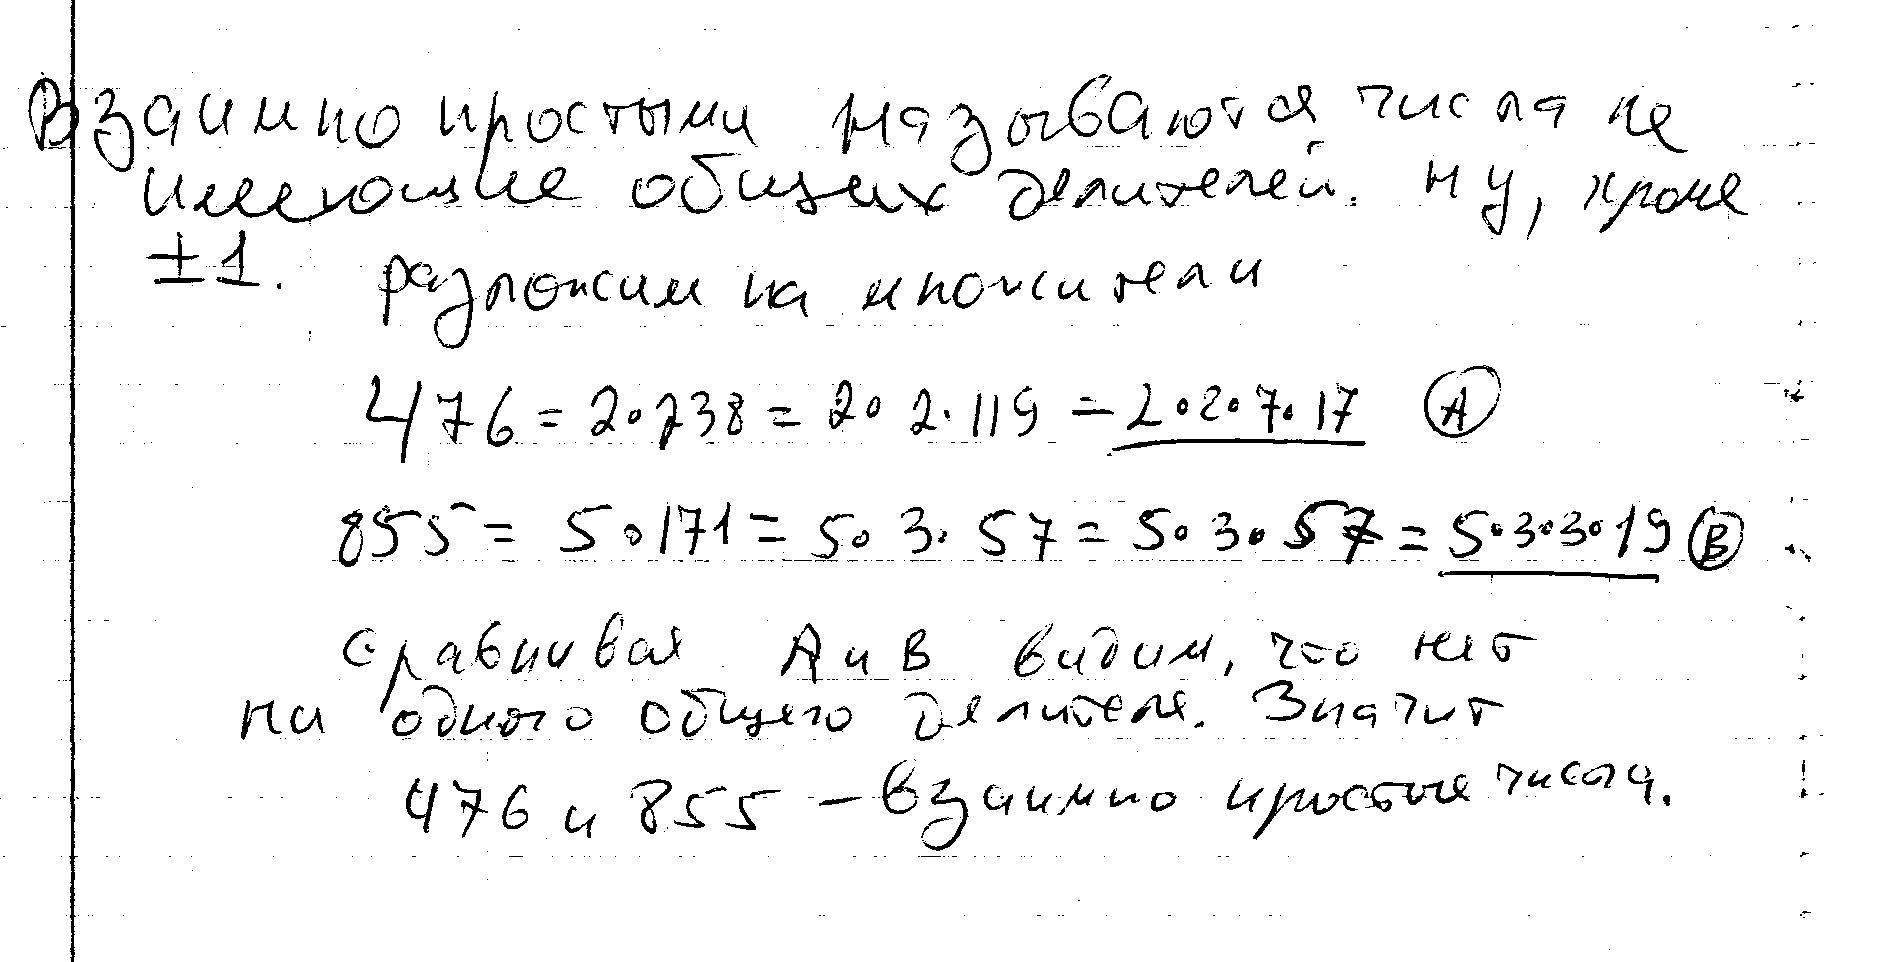 Взаимно простыми называются числа не
имеющие общих делителей. ну, кроме
±1. разложим на множители
476 = 2·238 = 2·2·119 = 2·2·7·17 (A)
855 = 5·171 = 5·3·57 = 5·3·57 = 5·3·3·19 (B)
сравнивая А и В видим, что нет
ни одного общего делителя. Значит
476 и 855 – взаимно простые числа.